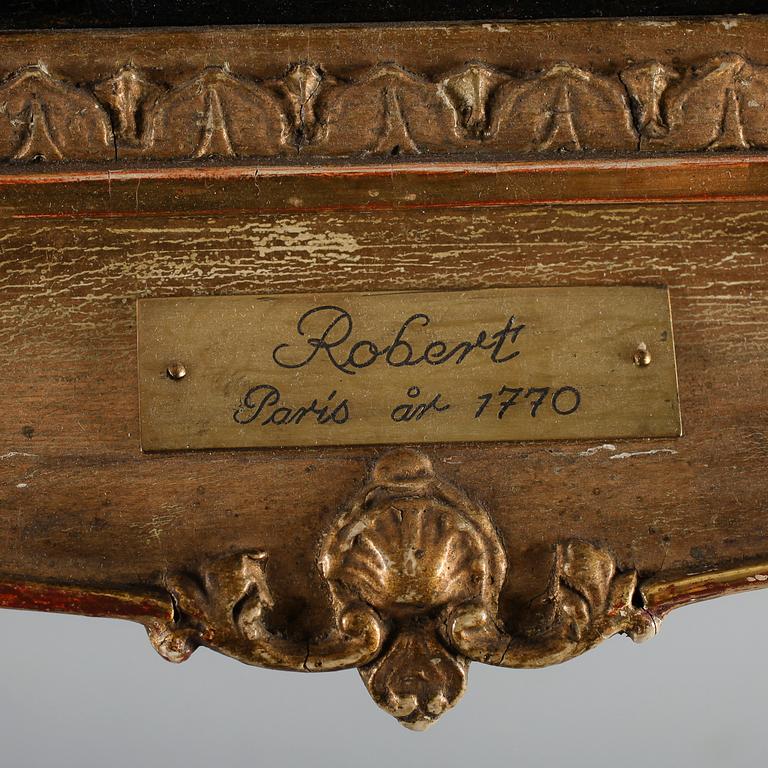 Robert
Paris år 1770